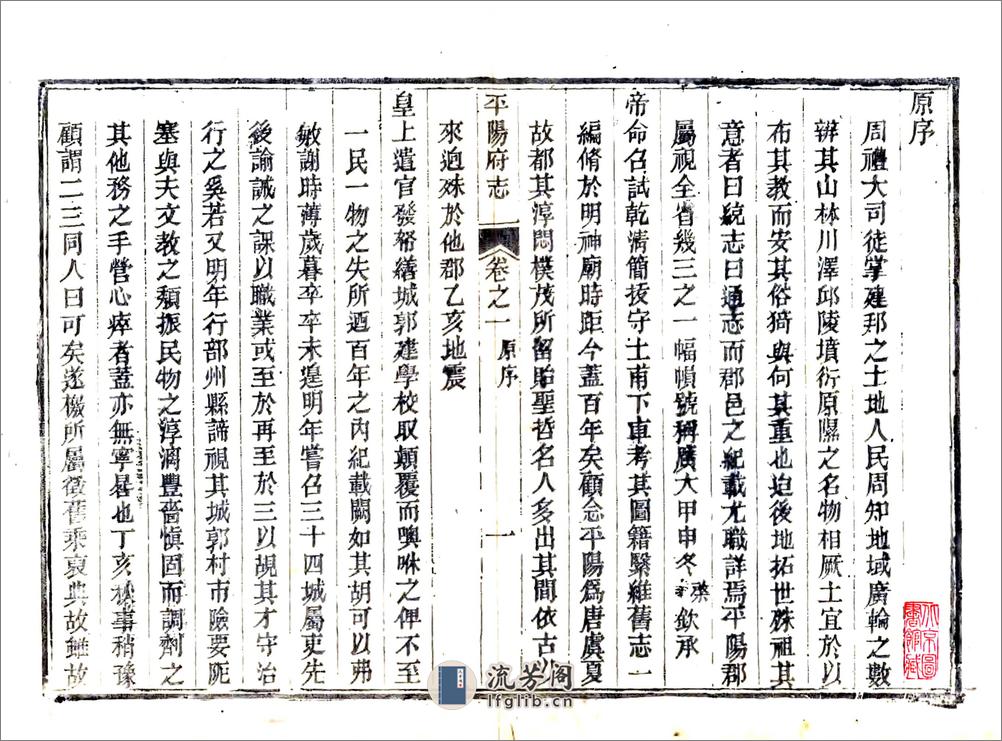 原序
周禮大司徒掌建邦之土地人民周知地域廣輪之數
辨其山林川澤邱陵墳衍原隰之名物相厥土宜於以
布其教而安其俗猗與何其重也迨後地拓世殊祖其
意者曰統志曰通志而郡邑之紀載尤職詳焉平陽郡
屬視全省幾三之一幅幀號稱廣大甲申冬棨欽承
帝命召試乾清簡拔守土甫下車考其圖籍繄維舊志一
編脩於明神廟時距今蓋百年矣顧念平陽爲唐虞夏
故都其淳悶樸茂所留貽聖哲名人多出其間依古以
平陽府志 卷之一 原序 一
來迥殊於他郡乙亥地震
皇上遣官發帑繕城郭建學校取顛覆而噢咻之俾不至
一民一物之失所迺百年之内紀載闕如其胡可以弗
敏謝時薄歲暮卒卒未遑明年嘗召三十四城屬吏先
後諭誡之課以職業或至於再至於三以覘其才守治
行之奚若又明年行部州縣諦視其城郭村市險要阨
塞與夫文教之頹振民物之淳漓豐嗇慎固而調劑之
其他務之手營心瘁者蓋亦無寧晷也丁亥秋事稍豫
顧謂二三同人曰可矣遂檄所屬徵舊乘裒典故雖故
流芳阁
lfglib.cn